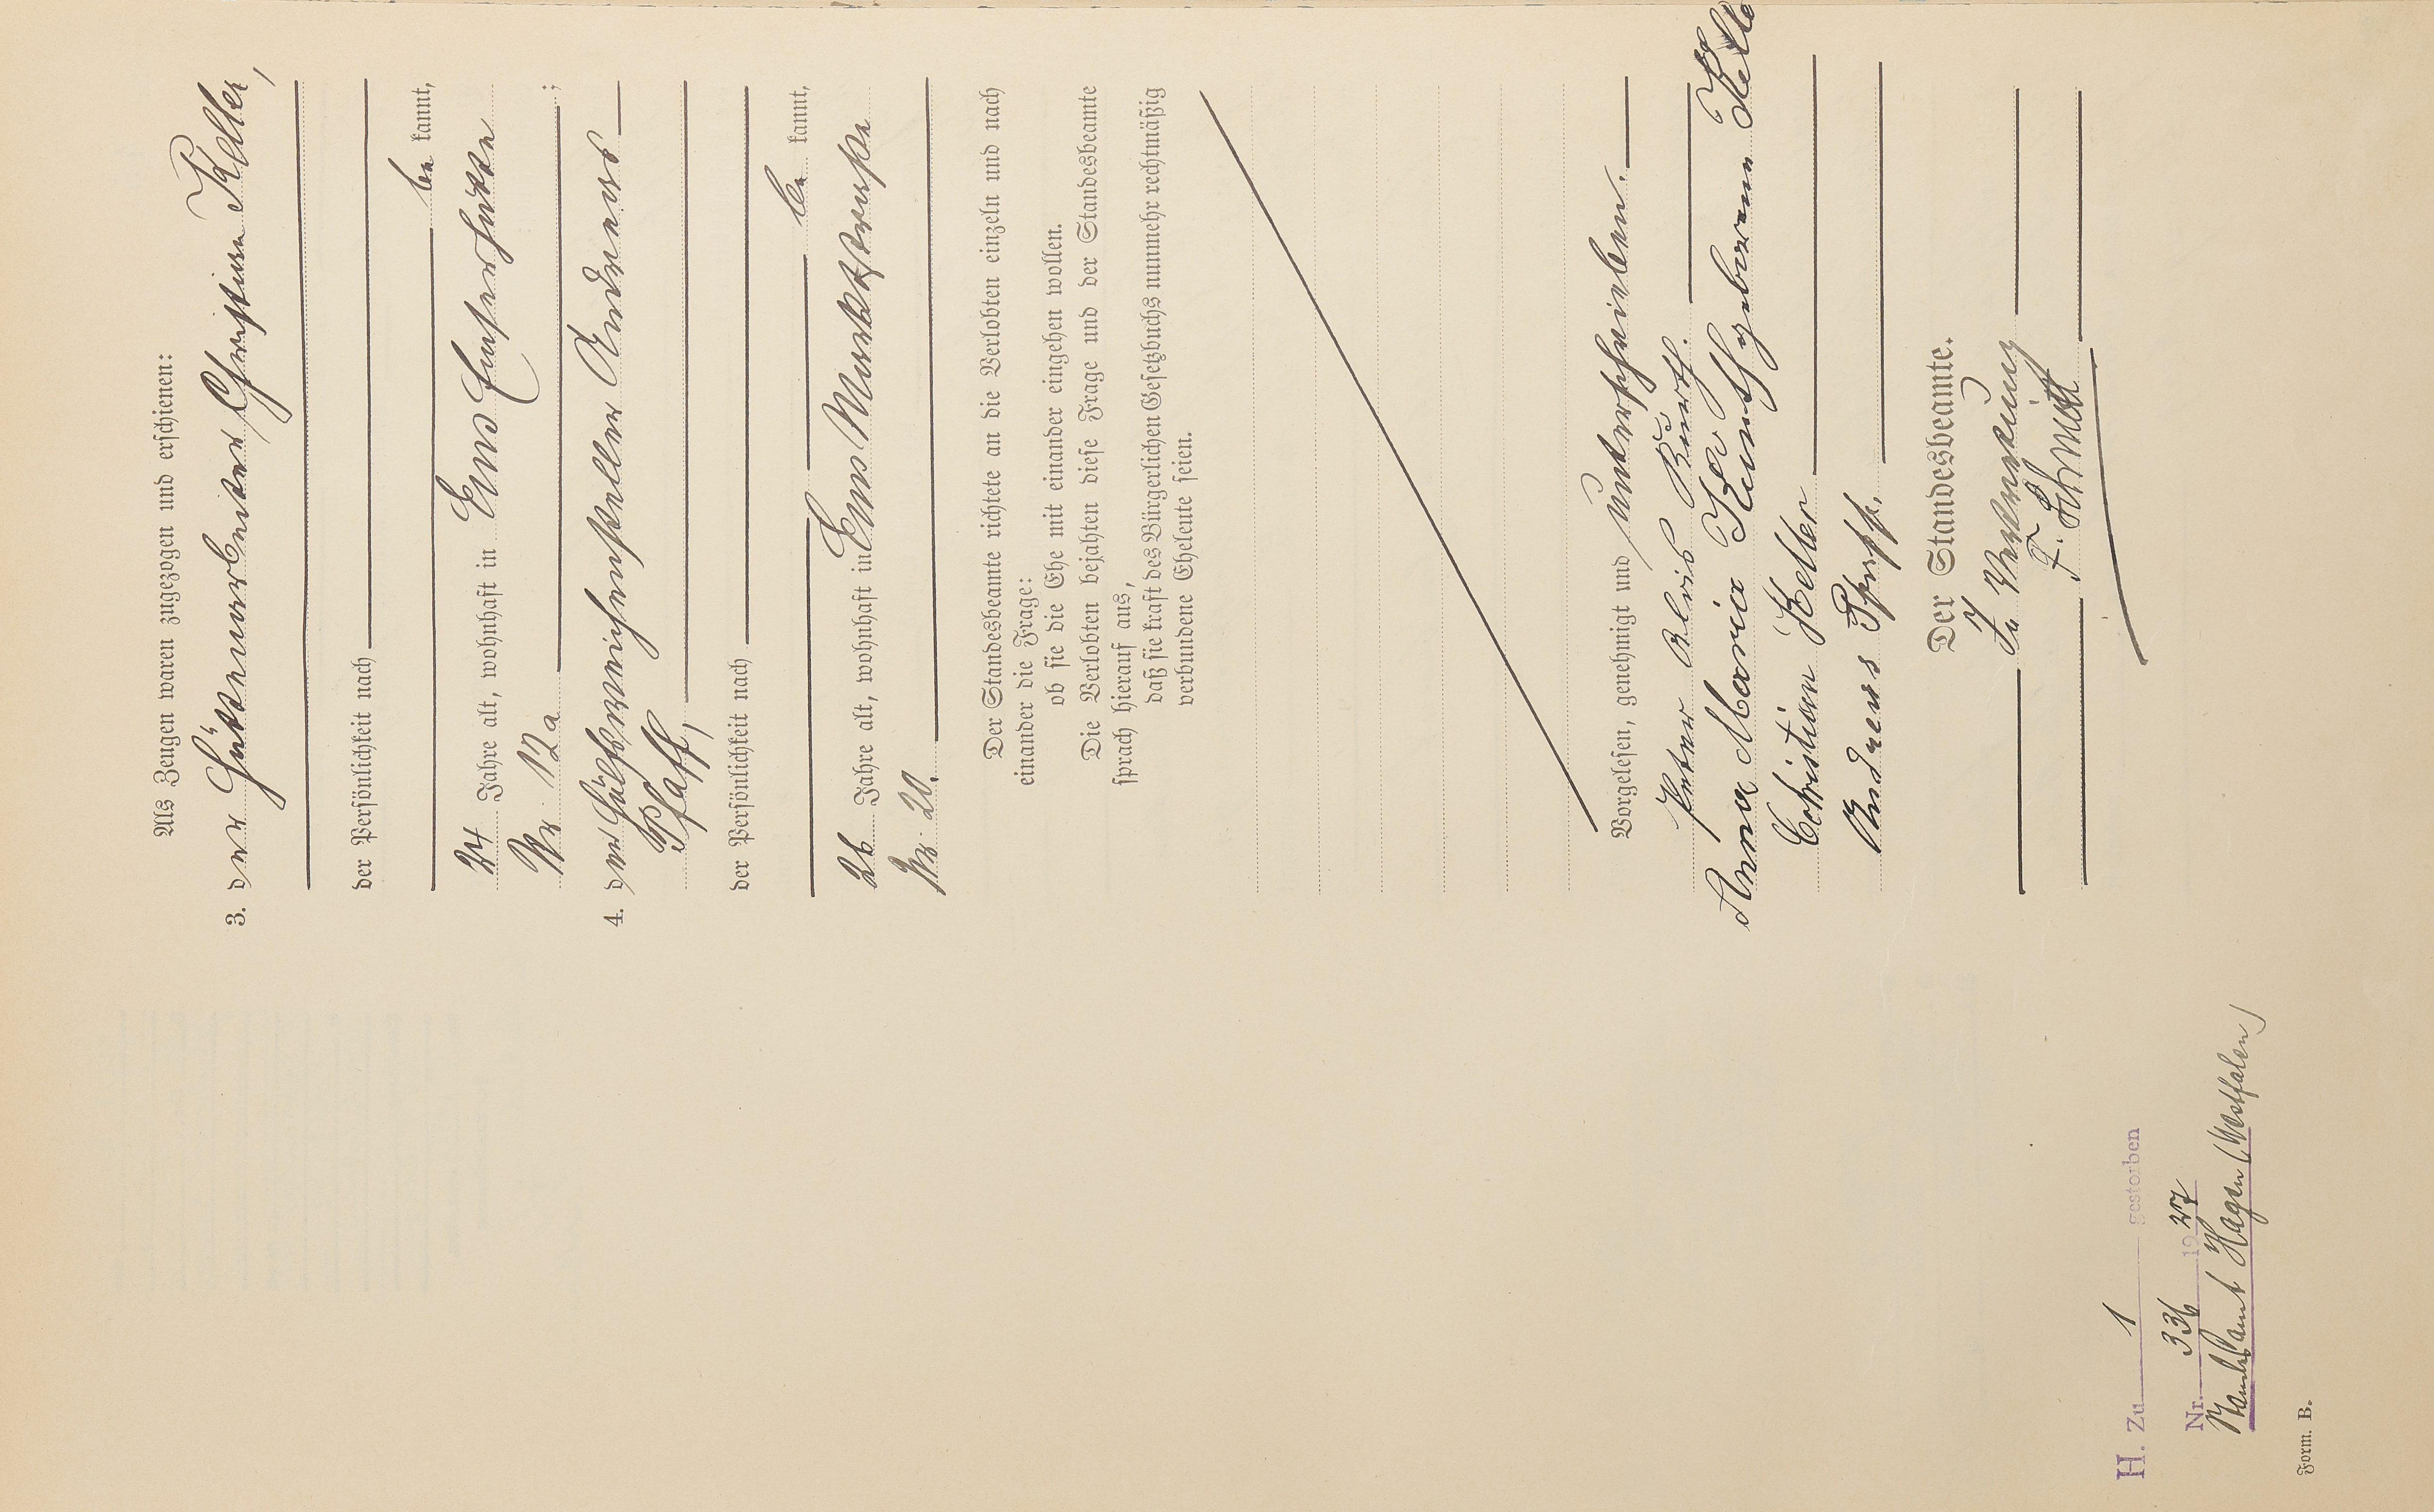 Als Zeugen waren zugezogen und erschienen:
3. der Hüttenarbeiter Christian Keller,
der Persönlichkeit nach
be kannt,
24 Jahre alt, wohnhaft in Ems
Nr. 12a ;
4. der Hülfsweichensteller Andreas
Pfaff,
der Persönlichkeit nach
be kannt,
26 Jahre alt, wohnhaft in Ems Marktstraße
Nr. 20.
Der Standesbeamte richtete an die Verlobten einzeln und nach
einander die Frage:
ob sie die Ehe mit einander eingehen wollen.
Die Verlobten bejahten diese Frage und der Standesbeamte
sprach hierauf aus,
daß sie kraft des Bürgerlichen Gesetzbuchs nunmehr rechtmäßig
verbundene Eheleute seien.
Vorgelesen, genehmigt und unterschrieben.
Peter Alois
Anna Maria geborene Kelle
Christian Keller
Andreas Pfaff.
Der Standesbeamte.
In Vertretung
F. Schmitt
H. Zu 1 gestorben
Nr. 336 1927
Standesamt Hagen (Westfalen)
Form. B.